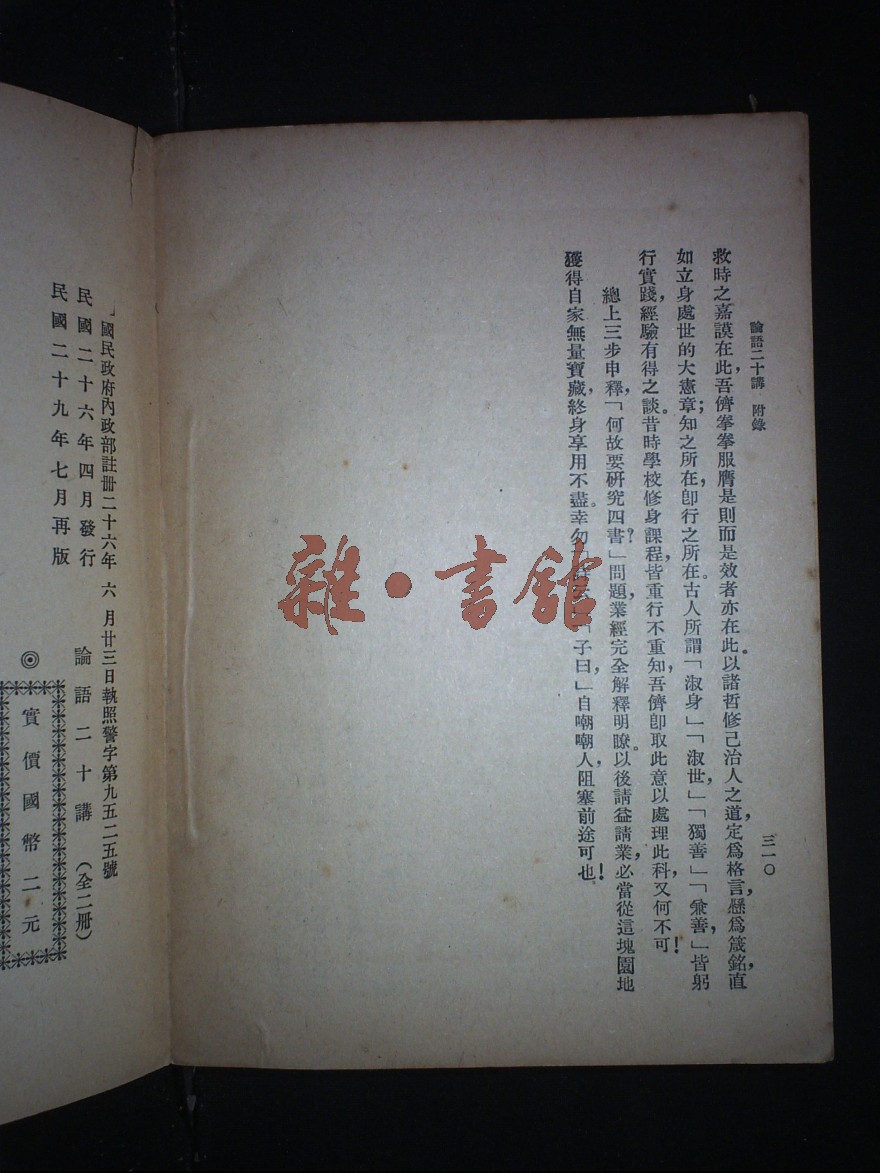 論語二十講　附錄
三一〇
救時之嘉謨在此，吾儕拳拳服膺是則而是效者亦在此。以諸哲修己治人之道，定爲格言，懸爲箴銘，直
如立身處世的大憲章；知之所在，卽行之所在。古人所謂「淑身」「淑世，」「獨善」「兼善，」皆躬
行實踐，經驗有得之談。昔時學校修身課程，皆重行不重知，吾儕卽取此意以處理此科，又何不可！
總上三步申釋，「何故要研究四書？」問題，業經完全解釋明瞭。以後請益請業，必當從這塊園地
獲得自家無量寶藏，終身享用不盡。幸勿「子曰，」自嘲嘲人，阻塞前途可也！
國民政府內政部註冊二十六年六月廿三日執照警字第九五二五號
民國二十六年四月發行
民國二十九年七月再版
論語二十講（全二冊）
◎實價國幣二元
雜·書館